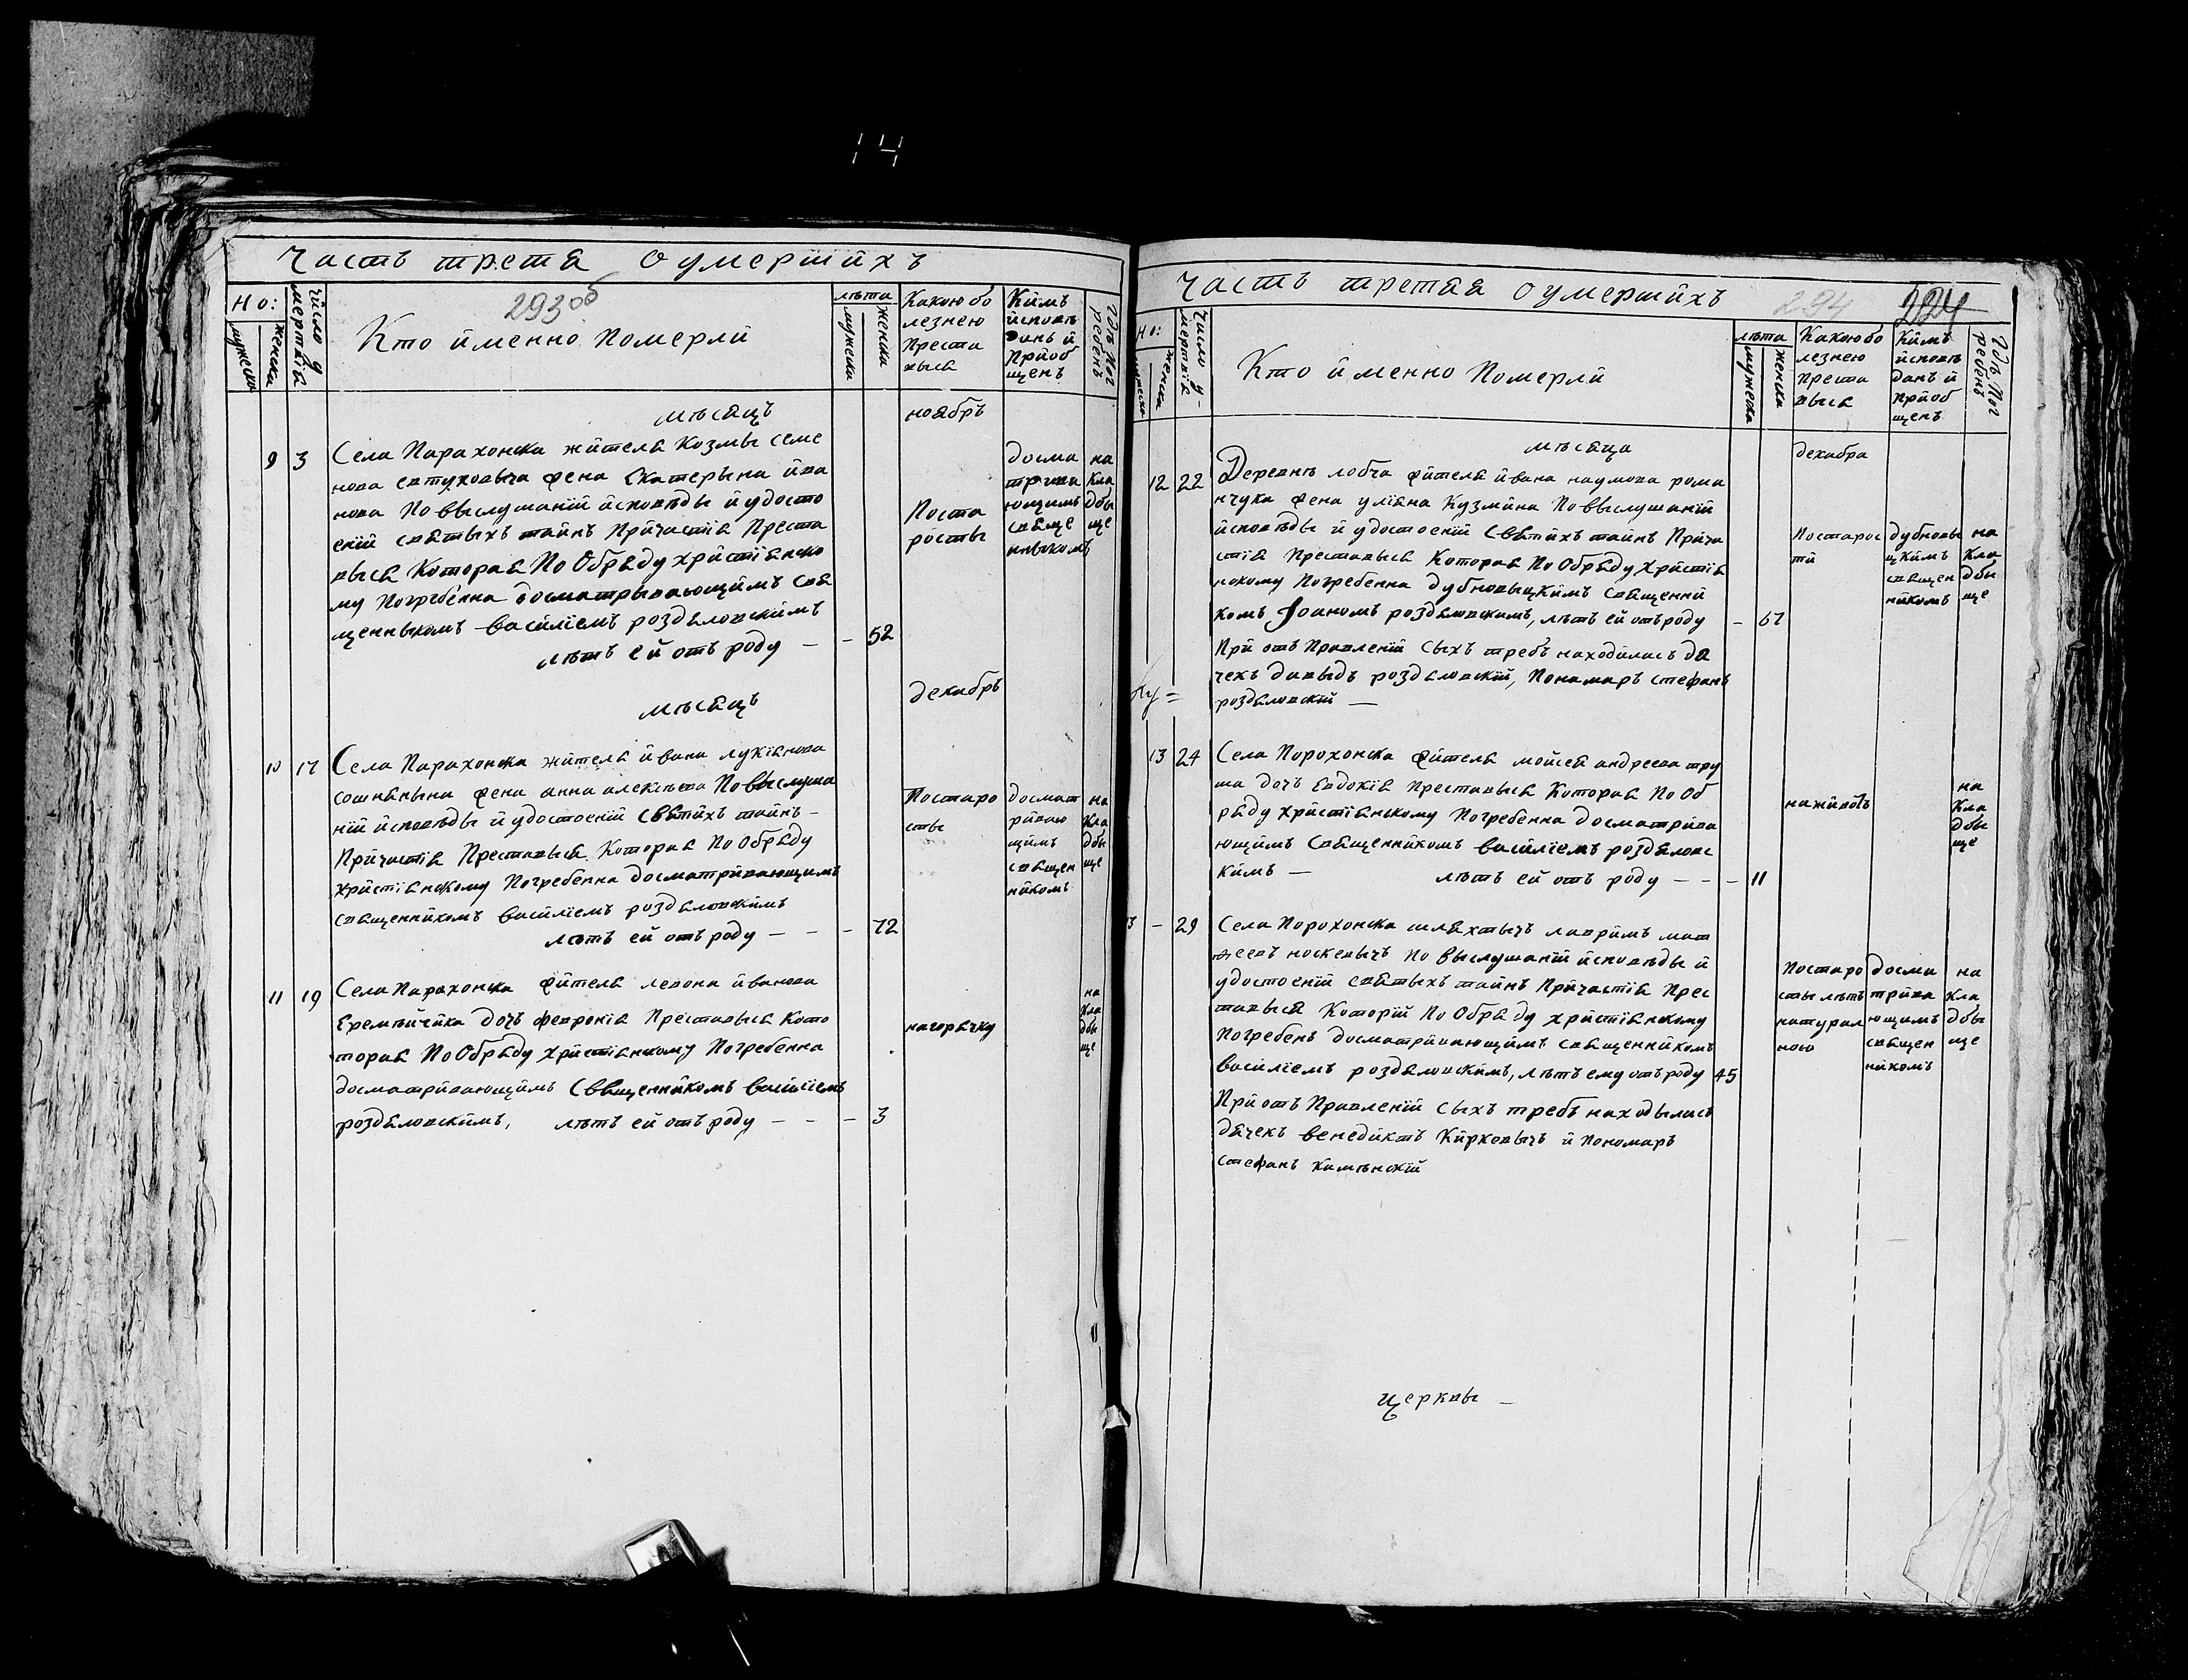 14
Часть третя о умершихъ
293об
Но:
мужеска
женска
Число у
мертвія
Кто йменно Померлй
лѣта
мужеска
женска
Какою бо
лезнею
Преста
выся
Кймъ
йсповѣ
данъ й
Прйоб
щенъ
Гдѣ Пог
ребенъ
мѣсяцъ
ноябръ
9 3
Села Парахонска жйтеля Козмы Семе
нова евтуховыча жена Екатерына йва
нова По выслушанїй йсповѣды й удосто
енїй святыхъ тайнъ Прйчастїя Преста
выся Котора я По Обряду Хрйстїанско
му Погребенна досматрывающймъ свя
щенныкомъ васйлїемъ роздяловскймъ
лѣтъ ей отъ роду — - 52
Поста
росты
досма
трива
ющимъ
свяще
нныкомъ
на
Кла
дбы
ще
мѣсяцъ
декабръ
10 17
Села Парахонска жйтеля йвана лукїанова
жена анна алексѣева По выслуша
нїй йсповѣды й удостоенїй Святйхъ тайнъ -
Прйчастїя Преставыся Которая По Обряду
Хрйстїанскому Погребенна досматрйвающимъ
священнйкомъ васйлїемъ роздяловскймъ
лѣтъ ей отъ роду — - - 72
Постаро
сты
досмат
рйваю
щймъ
священ
нйкомъ
на
Кла
дбы
ще
11 19
Села Парахонска жйтеля левона йванова
Еремѣйчйка дочъ феvронїя Преставыся Кото
торая По Обряду Хрйстїанскому Погребенна
досматрйвающймъ Священнйкомъ васйлїемъ
роздяловскймъ, лѣтъ ей отъ роду — - - 3
нагорячку
на
Кла
дбы
ще
Часть третяя о умершйхъ
294
Но:
мужеска
женска
Число у-
мертвїе
Кто йменно Померлй
лѣта
мужеска
женска
Какою бо
лезнею
Преста
выся
Кймъ
йсповѣ
данъ й
Прйоб
щенъ
Гдѣ Пог
ребенъ
мѣсяца
декабра
12 22
Деревнѣ лобча жйтеля йвана наумова рома
нчука жена улїяна Кузмйна По выслушанїй
йсповѣды й удостоенїй Святйхъ тайнъ Прйча
стїя Преставыся Которая По Обряду Хрйстїа
нскому Погребенна дубновыцкймъ священнй
комъ Іоаномъ роздяловскимъ, лѣтъ ей отъ роду - 67
Постарос
тй
дубновы
цкймъ
священ
нйкомъ
на
Кла
дбы
ще
Прй отъ Правленїй сыхъ требъ находйлись дя
чекъ давыдъ роздяловскїй, Пономаръ стефанъ
роздяловскїй —
13 24
Села Порохонска жйтеля мойсея андреева тру
ша дочъ Евдокїя Преставыся Которая По Об
ряду Хрйстїянскому Погребенна досматрйва
ющймъ Священнйкомъ васйлїемъ роздяловс
кймъ — лѣтъ ей отъ роду — - - 11
нажйвотъ
на
Кла
дбы
ще
13 - 29
Села Порохонска шляхтычъ лаврйнъ мат
жеевъ носкевычъ По выслушанїй йсповѣды й
удостоенїй святыхъ тайнъ Прйчастїя Прес
тавыся Которїй По Обряду Хрйстїанскому
Погребенъ досматрйвающймъ священнйкомъ
васйлїемъ роздяловскймъ, лѣтъ ему отъ роду 45
Постаро
сты лѣтъ
натурал
ною
досма
трйва
ющимъ
священ
нйкомъ
на
Кла
дбы
ще
Прй отъ Правленїй сыхъ требъ находылысь
дячекъ венедйктъ Кйрковычъ й Пономаръ
стефанъ Камѣнскїй
Церквы —